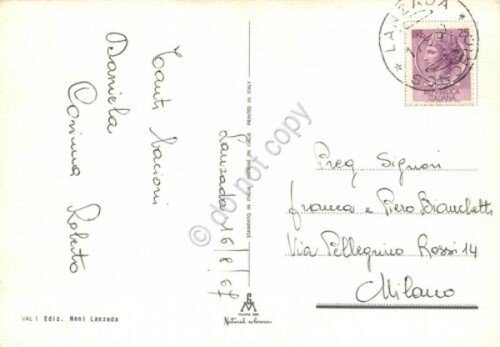 Tanti bacioni
Daniela
Corinna Roberto
Lanzada 16/8/67
Preg Signori
Franca e Piero Bianchetti
Via Pellegrino Rossi 14
Milano
LANZADA
LIRE 25
REPUBBLICA
ITALIANA
STAMPATO IN ITALIA IMPRIMÉ EN ITALIE PRINTED IN ITALY
VAL I Ediz. Nani Lanzada
Natural colorcon
do not copy